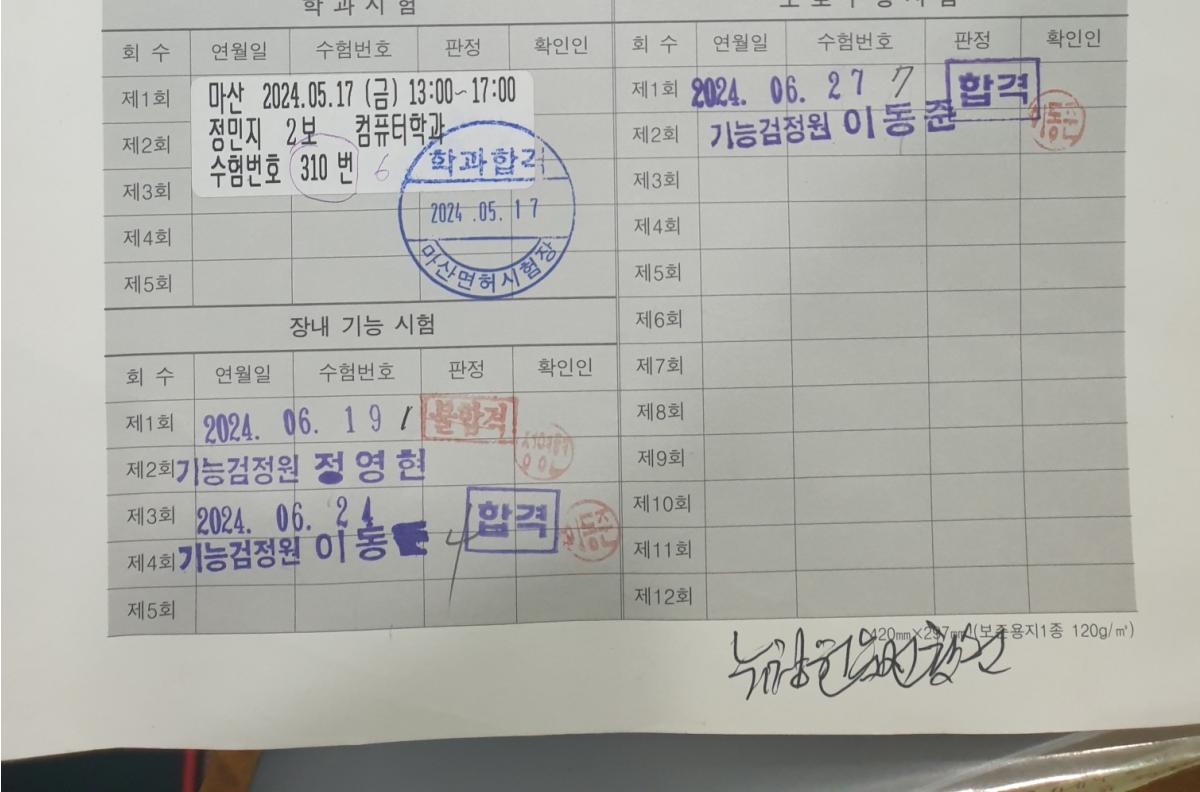 학 과 시 험
회 수 연월일 수험번호 판정 확인인
제1회
제2회
제3회
제4회
제5회
마산 2024.05.17 (금) 13:00~17:00
정민지 2보 컴퓨터학과
수험번호 310 번 6
학과합격
2024 .05. 17
마산면허시험장
장내 기능 시험
회 수 연월일 수험번호 판정 확인인
제1회 2024. 06. 19 1 불합격
제2회 기능검정원 정영현
제3회 2024. 06. 24 합격
제4회 기능검정원 이동 4
제5회
회 수 연월일 수험번호 판정 확인인
제1회 2024. 06. 27 7 합격
제2회 기능검정원 이동준
제3회
제4회
제5회
제6회
제7회
제8회
제9회
제10회
제11회
제12회
420㎜×297㎜(보존용지1종 120g/㎡)